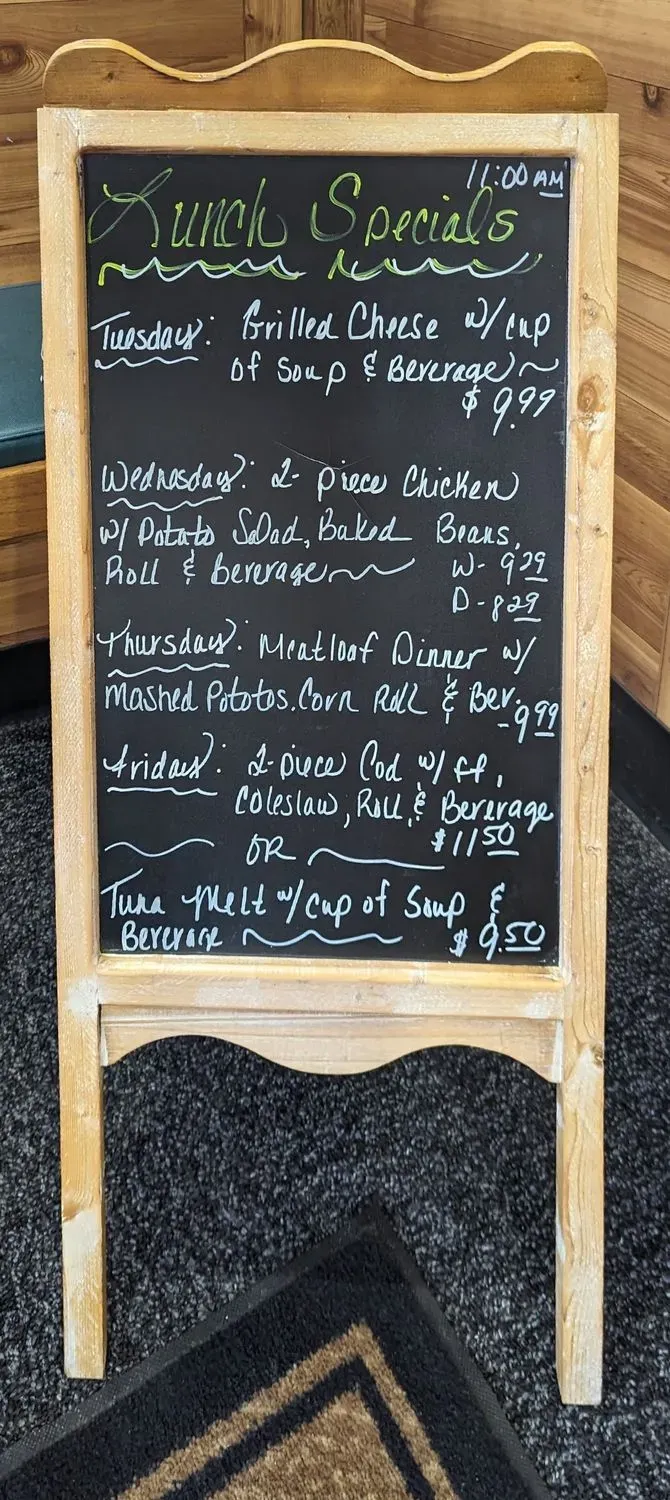 11:00 AM
Lunch Specials
Tuesday: Grilled Cheese w/ cup
of Soup & Beverage ~
$ 9.99
Wednesday: 2- piece Chicken
w/ Potato Salad, Baked Beans,
Roll & beverage W- 9.29
D- 8.29
Thursday: Meatloaf Dinner w/
Mashed Pototos. Corn Roll & Bev.
- 9.99
Friday: 2-piece Cod w/ ff,
Coleslaw, Roll, & Beverage
$11.50
OR
Tuna Melt w/ cup of Soup &
Beverage $ 9.50